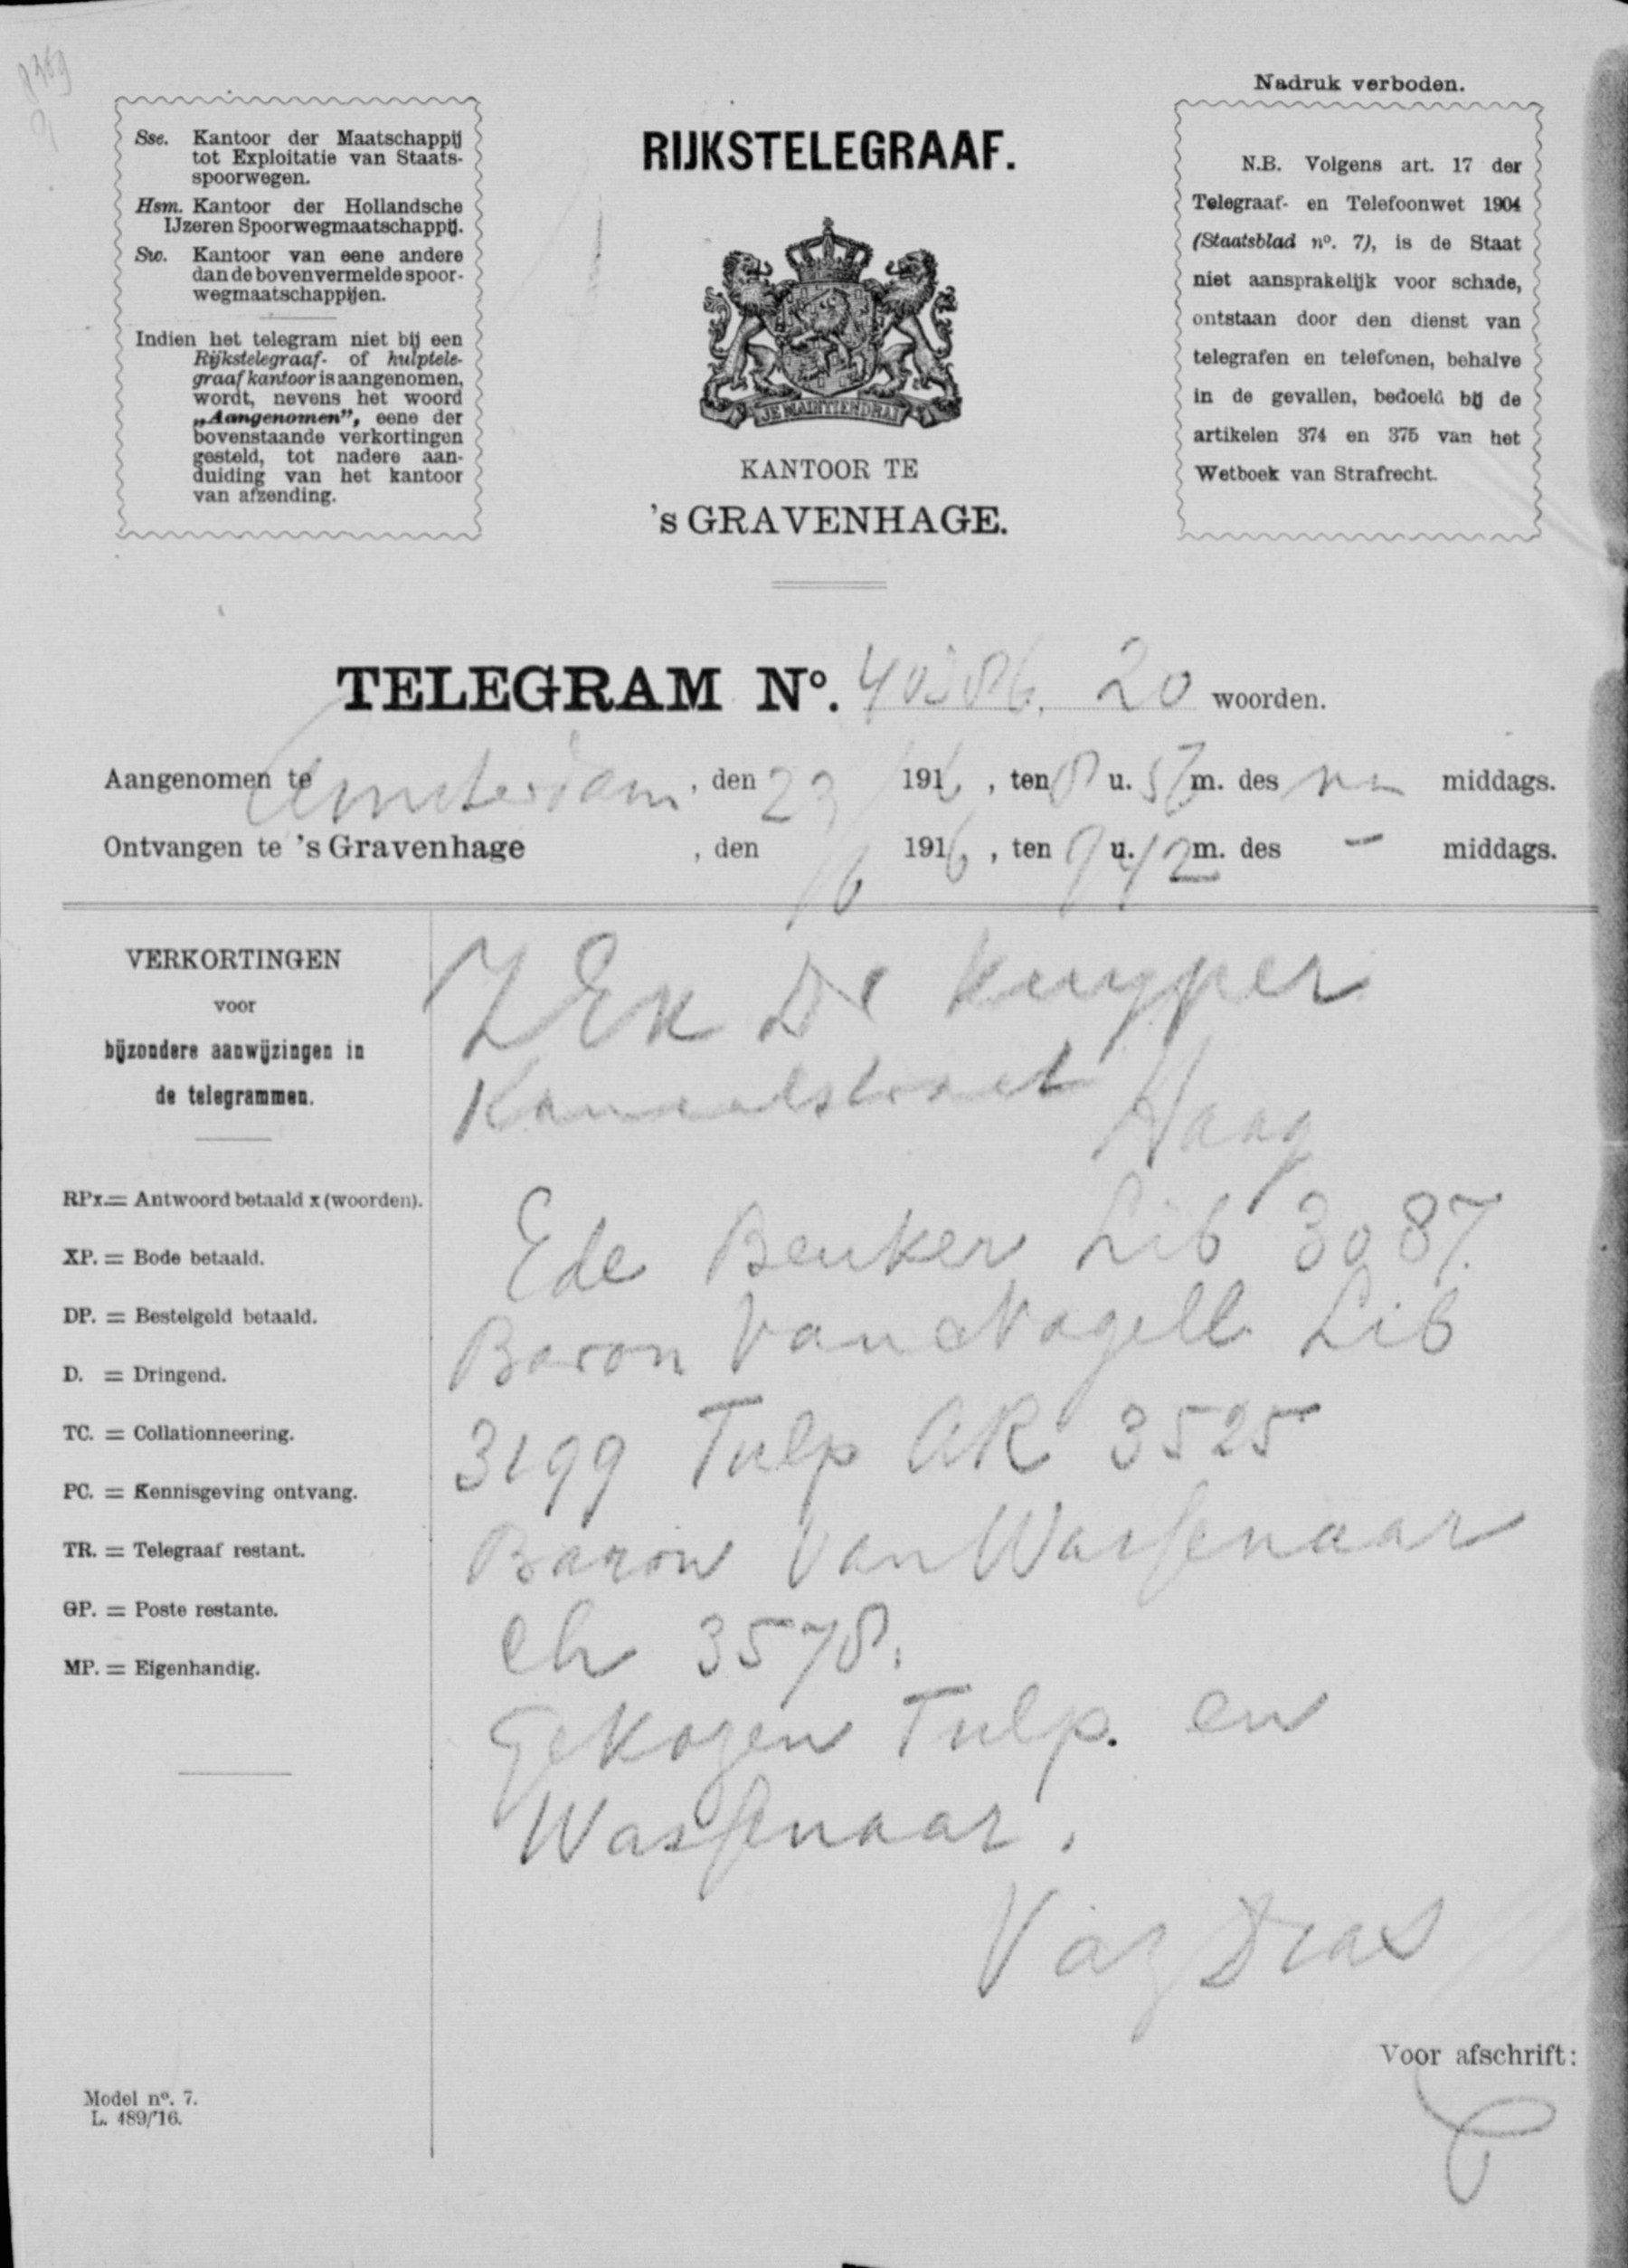 Nadruk verboden.
Sse. Kantoor der Maatschappij
tot Exploitatie van Staats-
spoorwegen.
Hsm. Kantoor der Hollandsche
IJzeren Spoorwegmaatschappij.
Sw. Kantoor van eene andere
dan de bovenvermelde spoor-
wegmaatschappijen.
Indien het telegram niet bij een
Rijkstelegraaf- of hulptele-
graafkantoor is aangenomen,
wordt, nevens het woord
„Aangenomen”, eene der
bovenstaande verkortingen
gesteld, tot nadere aan-
duiding van het kantoor
van afzending.
RIJKSTELEGRAAF.
JE MAINTIENDRAI
KANTOOR TE
's GRAVENHAGE.
N.B. Volgens art. 17 der
Telegraaf- en Telefoonwet 1904
(Staatsblad nº. 7), is de Staat
niet aansprakelijk voor schade,
ontstaan door den dienst van
telegrafen en telefonen, behalve
in de gevallen, bedoeld bij de
artikelen 374 en 375 van het
Wetboek van Strafrecht.
TELEGRAM Nº. 20 woorden.
Aangenomen te Amsterdam, den 23 1916, ten 8 u. m. des nm middags.
Ontvangen te 's Gravenhage, den /6 1916, ten 9 u. 42 m. des – middags.
VERKORTINGEN
voor
bijzondere aanwijzingen in
de telegrammen.
RPx.= Antwoord betaald x (woorden).
XP. = Bode betaald.
DP. = Bestelgeld betaald.
D. = Dringend.
TC. = Collationneering.
PC. = Kennisgeving ontvang.
TR. = Telegraaf restant.
GP. = Poste restante.
MP. = Eigenhandig.
ZEx Dr Kuyper
Kanaalstraat Haag
Ede Beuker Lib 3087.
Baron Van Nagell Lib
3199 Tulp AR 3525
Baron Van Wassenaar
ch 3578.
Gekozen Tulp. en
Wassenaar.
Vaz Dias
Voor afschrift:
Model nº. 7.
L. 489/'16.